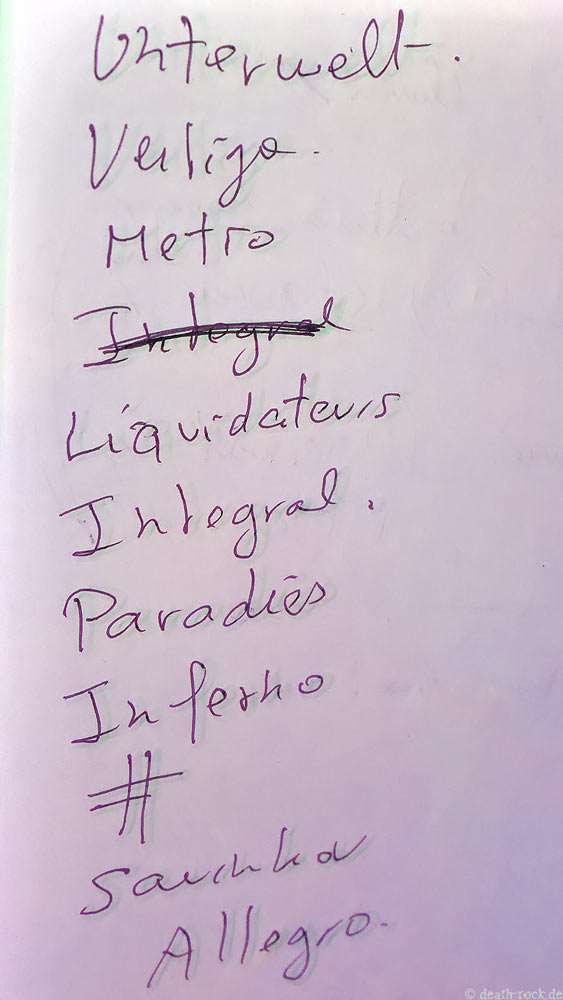 Unterwelt.
Vertigo.
Metro
Integral
Liquidateurs
Integral.
Paradies
Inferno
#
Savinkov
Allegro.
© death-rock.de